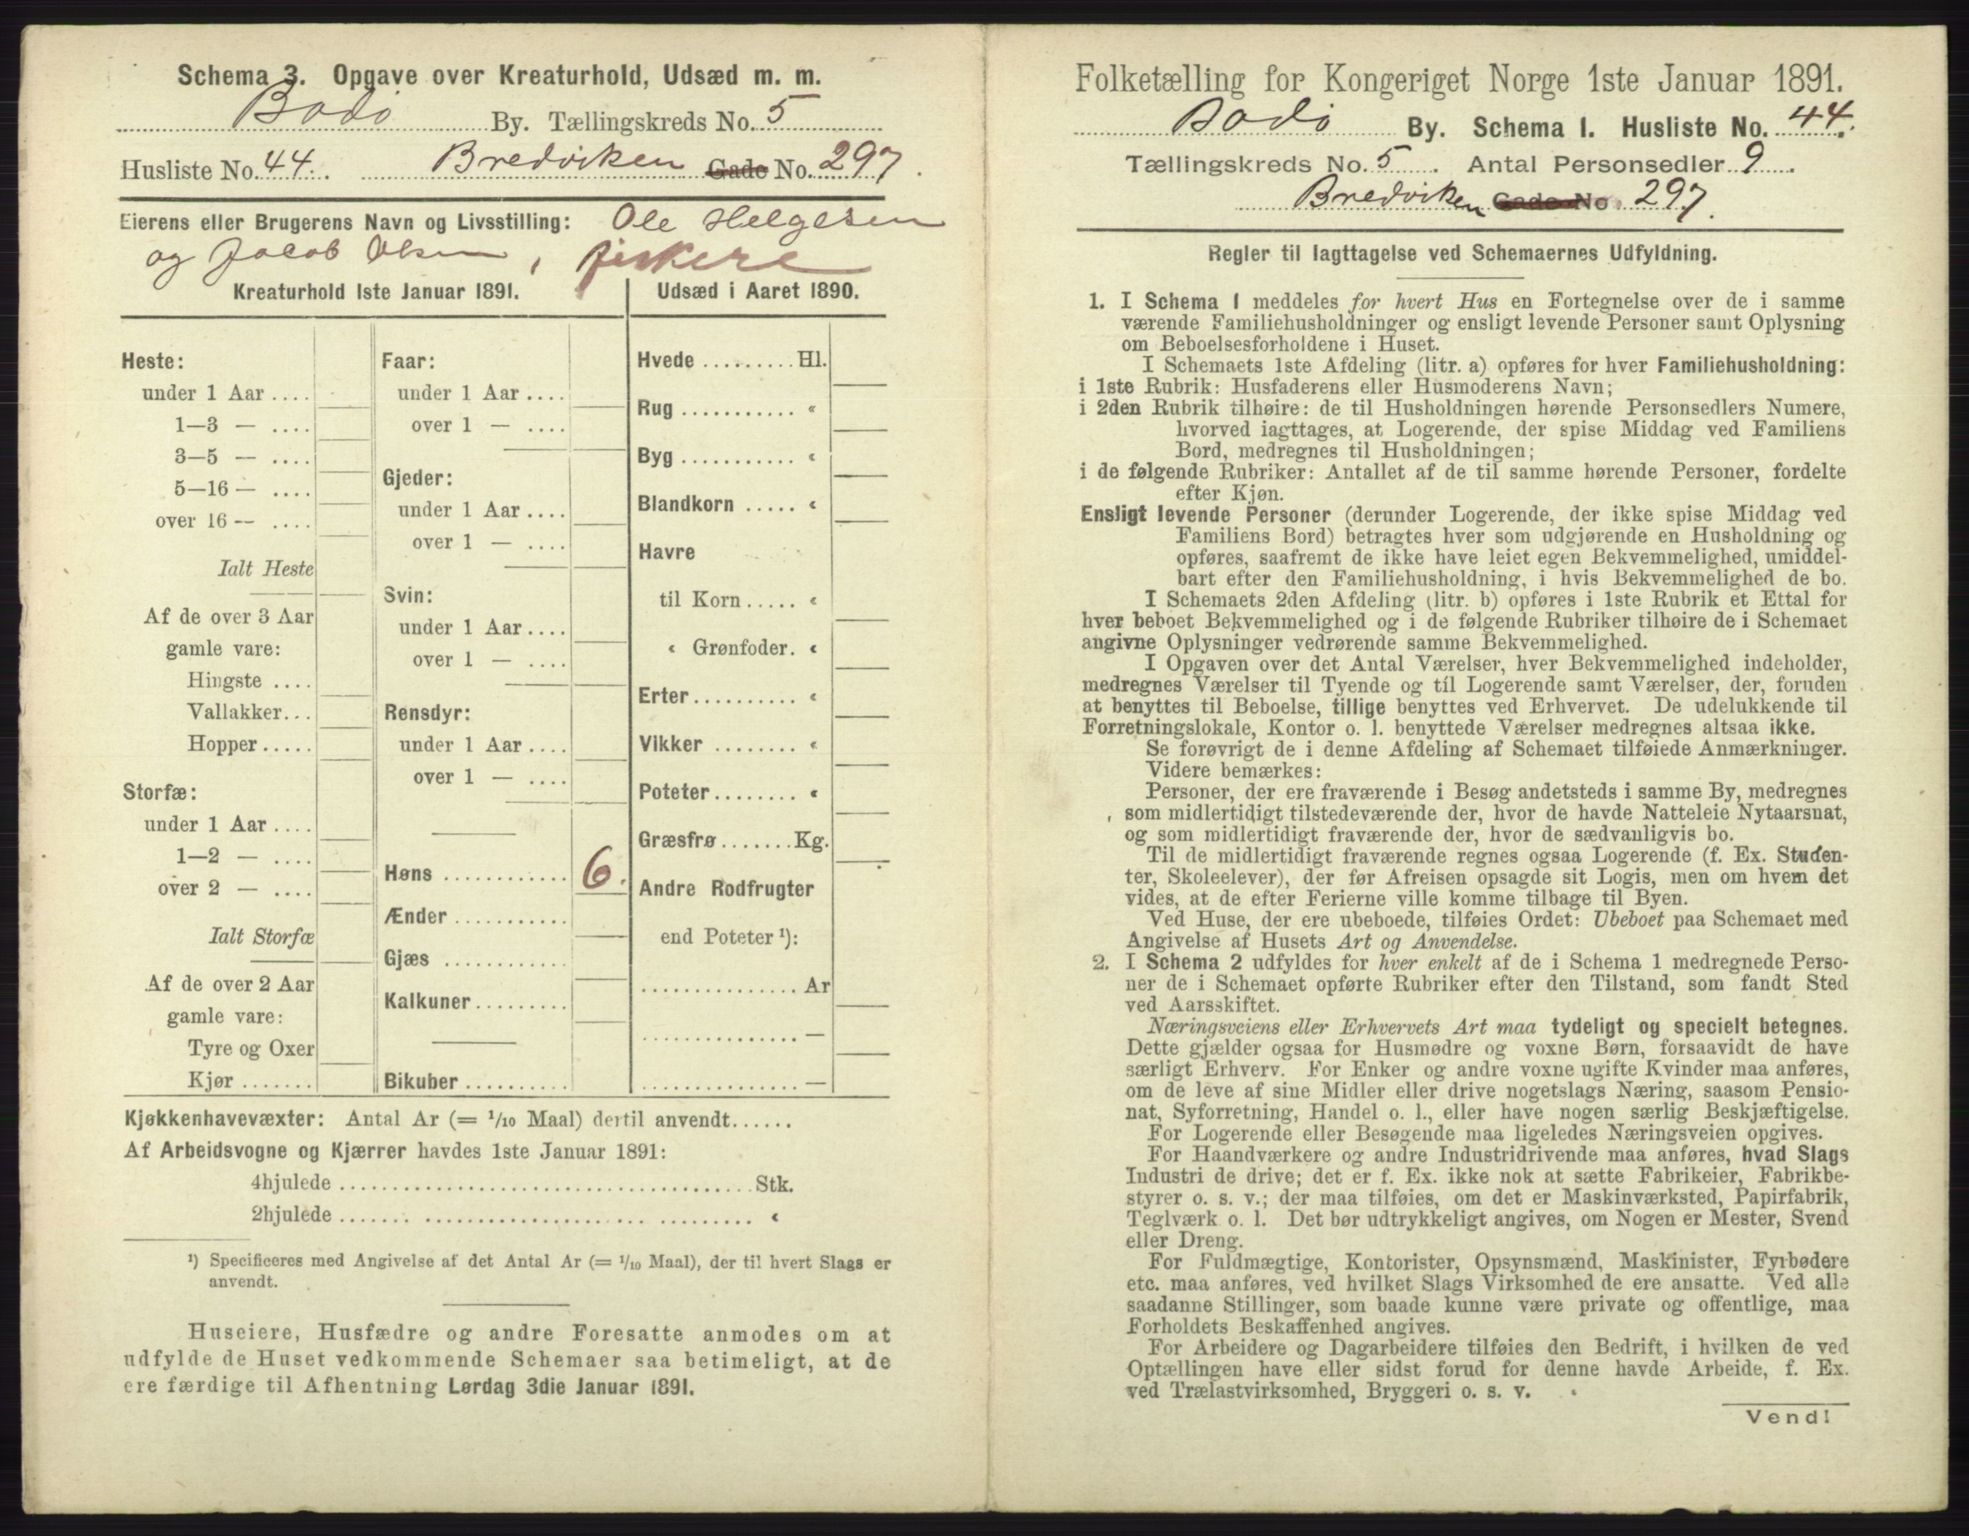 Schema 3. Opgave over Kreaturhold, Udsæd m. m.
Bodø By. Tællingskreds No. 5
Husliste No. 44. Bredviken Gade No. 297.
Eierens eller Brugerens Navn og Livsstilling: Ole Helgesen
og Jacob Olsen, fiskere
Kreaturhold 1ste Januar 1891.
Heste:
under 1 Aar ....
1—3 — ....
3—5 — ....
5—16 — ....
over 16 — ....
Ialt Heste
Af de over 3 Aar
gamle vare:
Hingste ....
Vallakker...
Hopper .....
Storfæ:
under 1 Aar ....
1—2 — ....
over 2 — ....
Ialt Storfæ
Af de over 2 Aar
gamle vare:
Tyre og Oxer
Kjør .......
Faar:
under 1 Aar ....
over 1 — ....
Gjeder:
under 1 Aar ....
over 1 — ....
Svin:
under 1 Aar ....
over 1 — ....
Rensdyr:
under 1 Aar ....
over 1 — ....
Høns ............ 6.
Ænder ...........
Gjæs ............
Kalkuner.........
Bikuber ..........
Udsæd i Aaret 1890.
Hvede ......... Hl.
Rug ........... «
Byg ........... «
Blandkorn ..... «
Havre
til Korn ..... «
« Grønfoder. «
Erter .......... «
Vikker ........ «
Poteter........ «
Græsfrø....... Kg.
Andre Rodfrugter
end Poteter ¹):
............... Ar
............... —
............... —
Kjøkkenhavevæxter: Antal Ar (= 1/10 Maal) dertil anvendt......
Af Arbeidsvogne og Kjærrer havdes 1ste Januar 1891:
4hjulede ........................................ Stk.
2hjulede ........................................ «
¹) Specificeres med Angivelse af det Antal Ar (= 1/10 Maal), der til hvert Slags er
anvendt.
Huseiere, Husfædre og andre Foresatte anmodes om at
udfylde de Huset vedkommende Schemaer saa betimeligt, at de
ere færdige til Afhentning Lørdag 3die Januar 1891.
Folketælling for Kongeriget Norge 1ste Januar 1891.
Bodø By. Schema 1. Husliste No. 44.
Tællingskreds No. 5. Antal Personsedler 9.
Bredviken Gade No. 297.
Regler til Iagttagelse ved Schemaernes Udfyldning.
1. I Schema 1 meddeles for hvert Hus en Fortegnelse over de i samme
værende Familiehusholdninger og ensligt levende Personer samt Oplysning
om Beboelsesforholdene i Huset.
I Schemaets 1ste Afdeling (litr. a) opføres for hver Familiehusholdning:
i 1ste Rubrik: Husfaderens eller Husmoderens Navn;
i 2den Rubrik tilhøire: de til Husholdningen hørende Personsedlers Numere,
hvorved iagttages, at Logerende, der spise Middag ved Familiens
Bord, medregnes til Husholdningen;
i de følgende Rubriker: Antallet af de til samme hørende Personer, fordelte
efter Kjøn.
Ensligt levende Personer (derunder Logerende, der ikke spise Middag ved
Familiens Bord) betragtes hver som udgjørende en Husholdning og
opføres, saafremt de ikke have leiet egen Bekvemmelighed, umiddel-
bart efter den Familiehusholdning, i hvis Bekvemmelighed de bo.
I Schemaets 2den Afdeling (litr. b) opføres i 1ste Rubrik et Ettal for
hver beboet Bekvemmelighed og i de følgende Rubriker tilhøire de i Schemaet
angivne Oplysninger vedrørende samme Bekvemmelighed.
I Opgaven over det Antal Værelser, hver Bekvemmelighed indeholder,
medregnes Værelser til Tyende og til Logerende samt Værelser, der, foruden
at benyttes til Beboelse, tillige benyttes ved Erhvervet. De udelukkende til
Forretningslokale, Kontor o. l. benyttede Værelser medregnes altsaa ikke.
Se forøvrigt de i denne Afdeling af Schemaet tilføiede Anmærkninger.
Videre bemærkes:
Personer, der ere fraværende i Besøg andetsteds i samme By, medregnes
som midlertidigt tilstedeværende der, hvor de havde Natteleie Nytaarsnat,
og som midlertidigt fraværende der, hvor de sædvanligvis bo.
Til de midlertidigt fraværende regnes ogsaa Logerende (f. Ex. Studen-
ter, Skoleelever), der før Afreisen opsagde sit Logis, men om hvem det
vides, at de efter Ferierne ville komme tilbage til Byen.
Ved Huse, der ere ubeboede, tilføies Ordet: Ubeboet paa Schemaet med
Angivelse af Husets Art og Anvendelse.
2. I Schema 2 udfyldes for hver enkelt af de i Schema 1 medregnede Perso-
ner de i Schemaet opførte Rubriker efter den Tilstand, som fandt Sted
ved Aarsskiftet.
Næringsveiens eller Erhvervets Art maa tydeligt og specielt betegnes.
Dette gjælder ogsaa for Husmødre og voxne Børn, forsaavidt de have
særligt Erhverv. For Enker og andre voxne ugifte Kvinder maa anføres,
om de leve af sine Midler eller drive nogetslags Næring, saasom Pensio-
nat, Syforretning, Handel o. l., eller have nogen særlig Beskjæftigelse.
For Logerende eller Besøgende maa ligeledes Næringsveien opgives.
For Haandværkere og andre Industridrivende maa anføres, hvad Slags
Industri de drive; det er f. Ex. ikke nok at sætte Fabrikeier, Fabrikbe-
styrer o. s. v.; der maa tilføies, om det er Maskinværksted, Papirfabrik,
Teglværk o. l. Det bør udtrykkeligt angives, om Nogen er Mester, Svend
eller Dreng.
For Fuldmægtige, Kontorister, Opsynsmænd, Maskinister, Fyrbødere
etc. maa anføres, ved hvilket Slags Virksomhed de ere ansatte. Ved alle
saadanne Stillinger, som baade kunne være private og offentlige, maa
Forholdets Beskaffenhed angives.
For Arbeidere og Dagarbeidere tilføies den Bedrift, i hvilken de ved
Optællingen have eller sidst forud for denne havde Arbeide, f. Ex.
ved Trælastvirksomhed, Bryggeri o. s. v.
Vend!